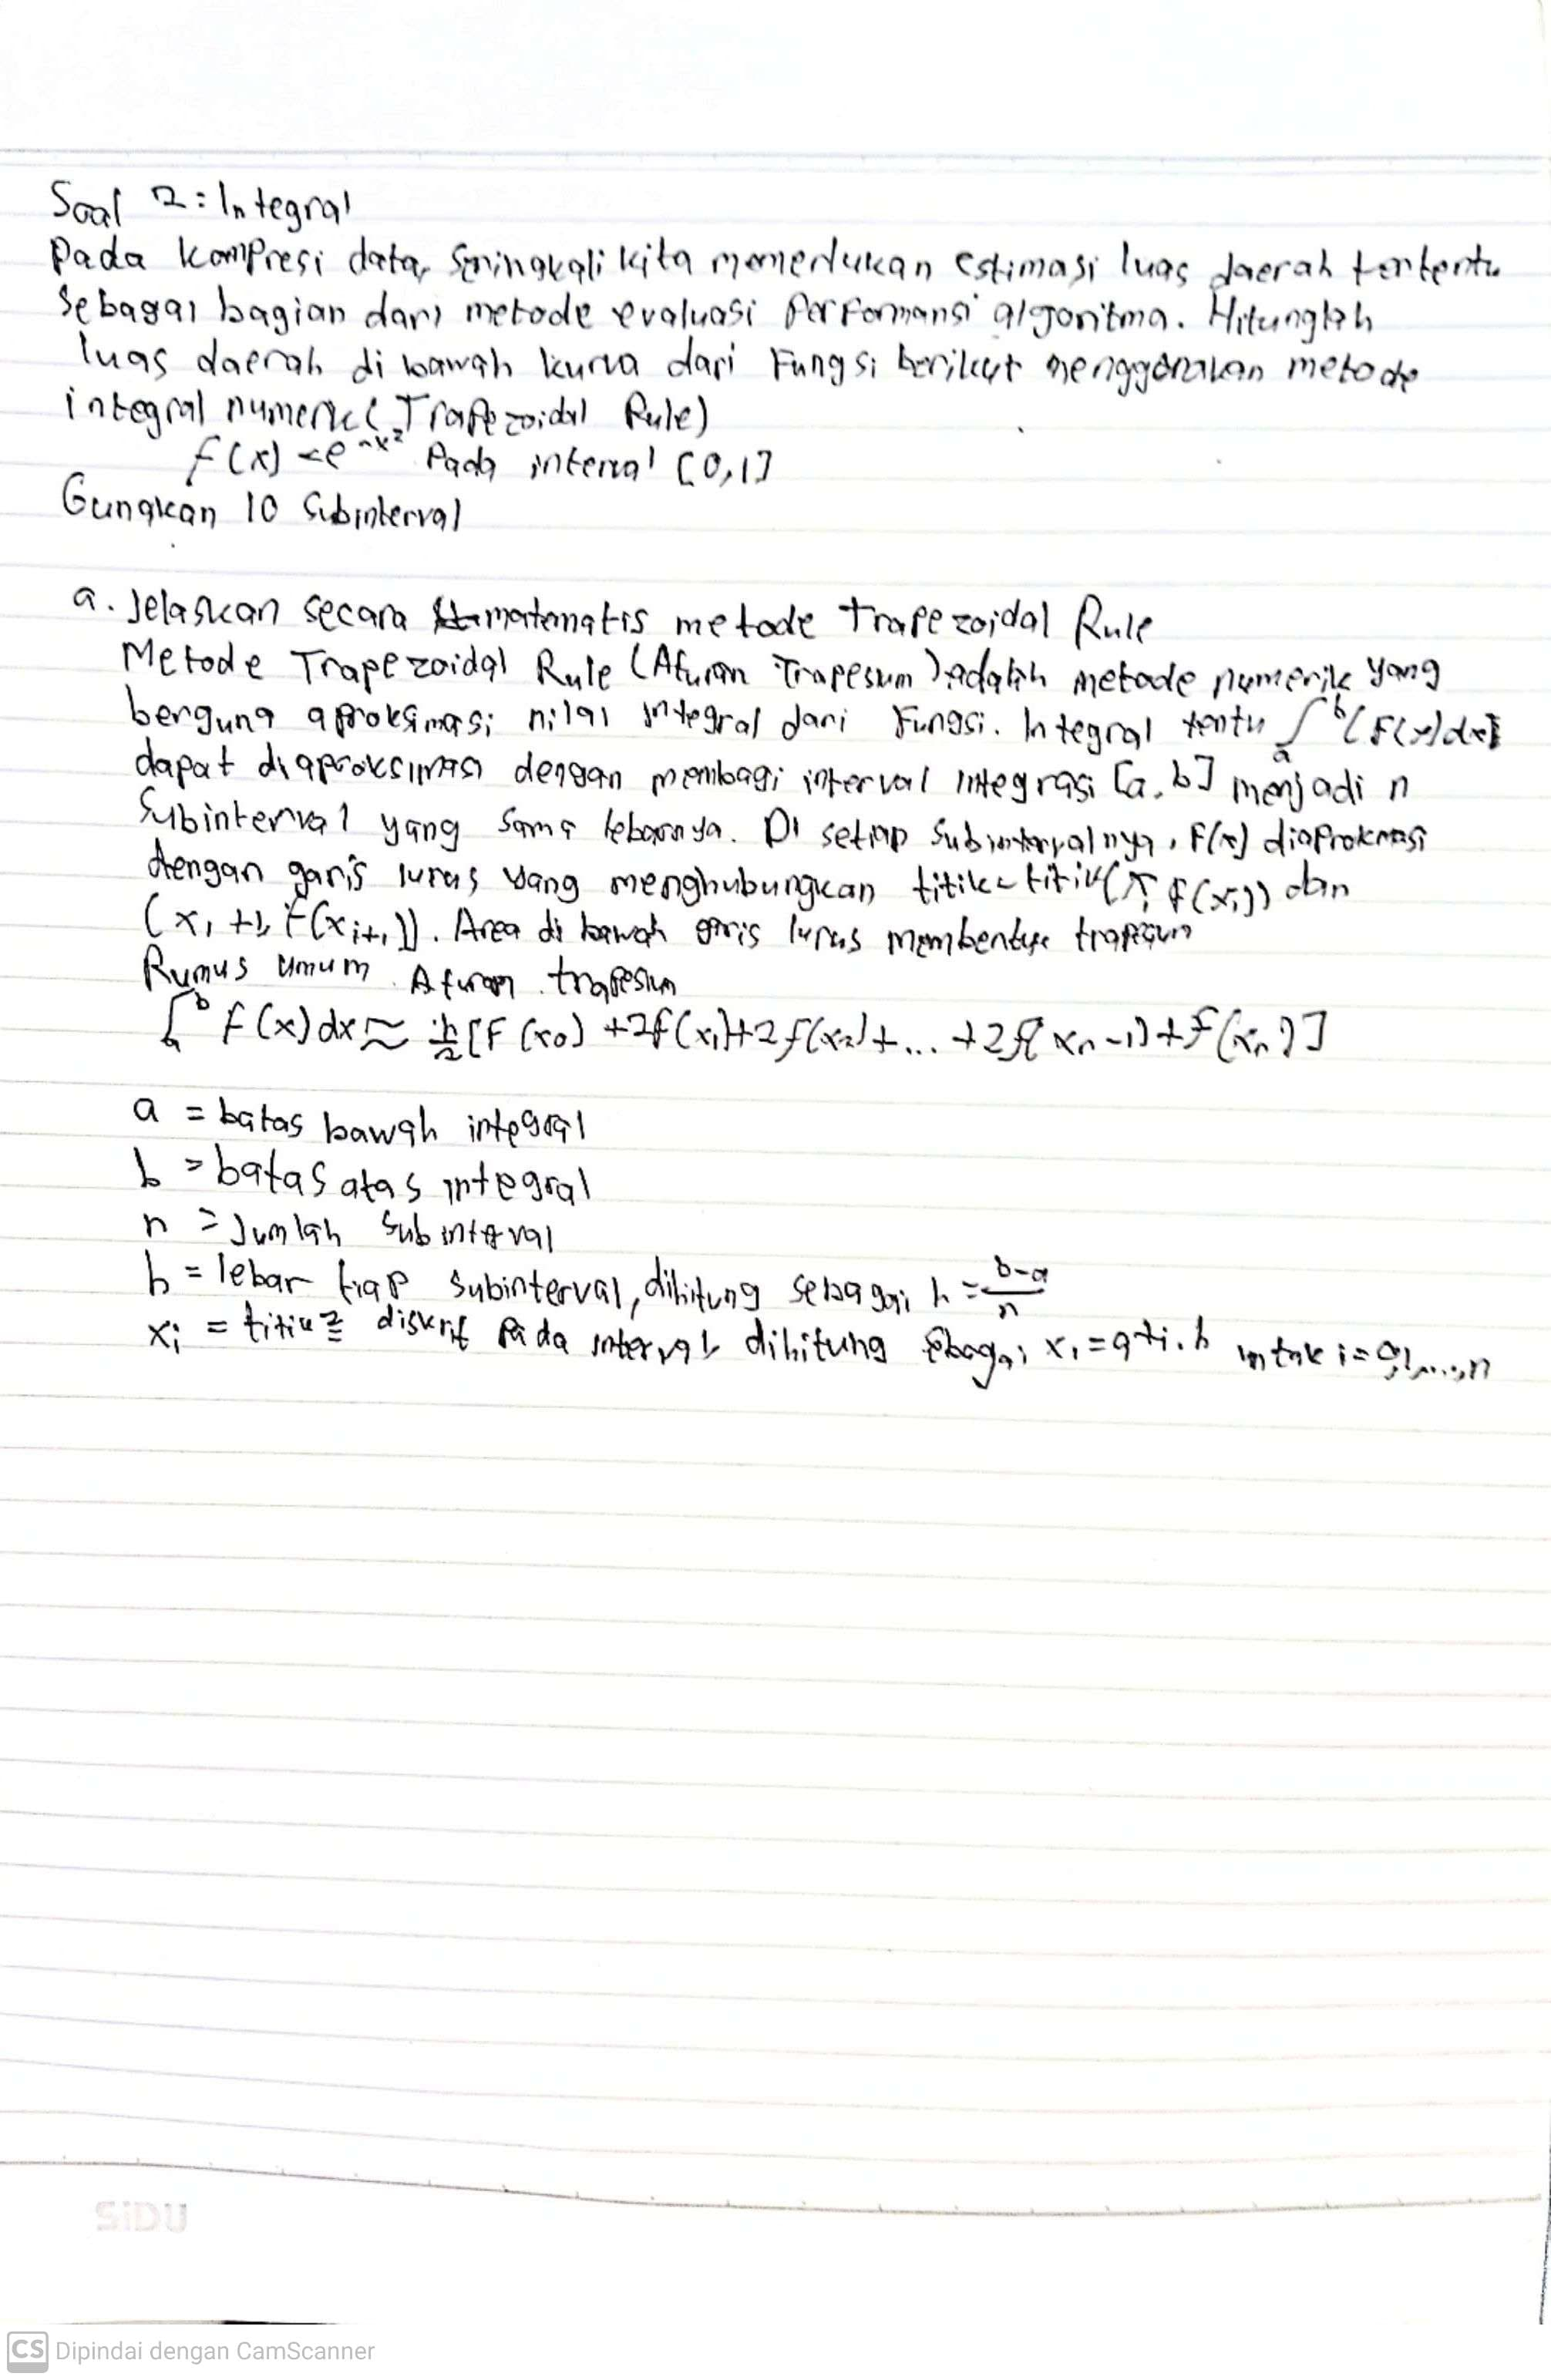 Soal 2 : Integral
Pada kompresi data, seringkali kita memerlukan estimasi luas daerah tertentu
Sebagai bagian dari metode evaluasi performansi algoritma. Hitunglah
luas daerah di bawah kurva dari Fungsi berikut menggunakan metode
integral numerik (Trapezoidal Rule)
f(x) = e^-x² Pada interval [0,1]
Gunakan 10 Subinterval
a. Jelaskan secara matematis metode Trapezoidal Rule
Metode Trapezoidal Rule (Aturan Trapesium) adalah metode numerik yang
berguna aproksimasi nilai integral dari Fungsi. Integral tentu ∫ₐᵇ (F(x)dx)
dapat diaproksimasi dengan membagi interval integrasi [a,b] menjadi n
Subinterval yang sama lebarnya. Di setiap subintervalnya, F(x) diaprokmasi
dengan garis lurus yang menghubungkan titik-titik (xᵢ, f(xᵢ)) dan
(xᵢ+1, f(xᵢ₊₁)). Area di bawah garis lurus membentuk trapesium
Rumus umum Aturan trapesium
∫ₐᵇ f(x)dx ≈ h/2 [F(x₀) + 2f(x₁) + 2f(x₂) + ... + 2f(xₙ-1) + F(xₙ)]
a = batas bawah integral
b = batas atas integral
n = Jumlah Subinterval
h = lebar tiap subinterval, dihitung sebagai h = b-a/n
xᵢ = titik2 diskrit pada interval, dihitung sebagai xᵢ = a+i.h untuk i = 0,1,...,n
SiDU
CS Dipindai dengan CamScanner